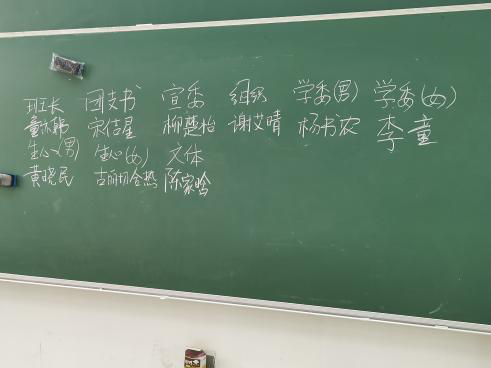 班长 团支书 宣委 组织 学委(男) 学委(女)
童亦韩 宋佶星 柳楚怡 谢艾晴 杨书农 李童
生心(男) 生心(女) 文体
黄晓民 古丽切合热 陈家晗